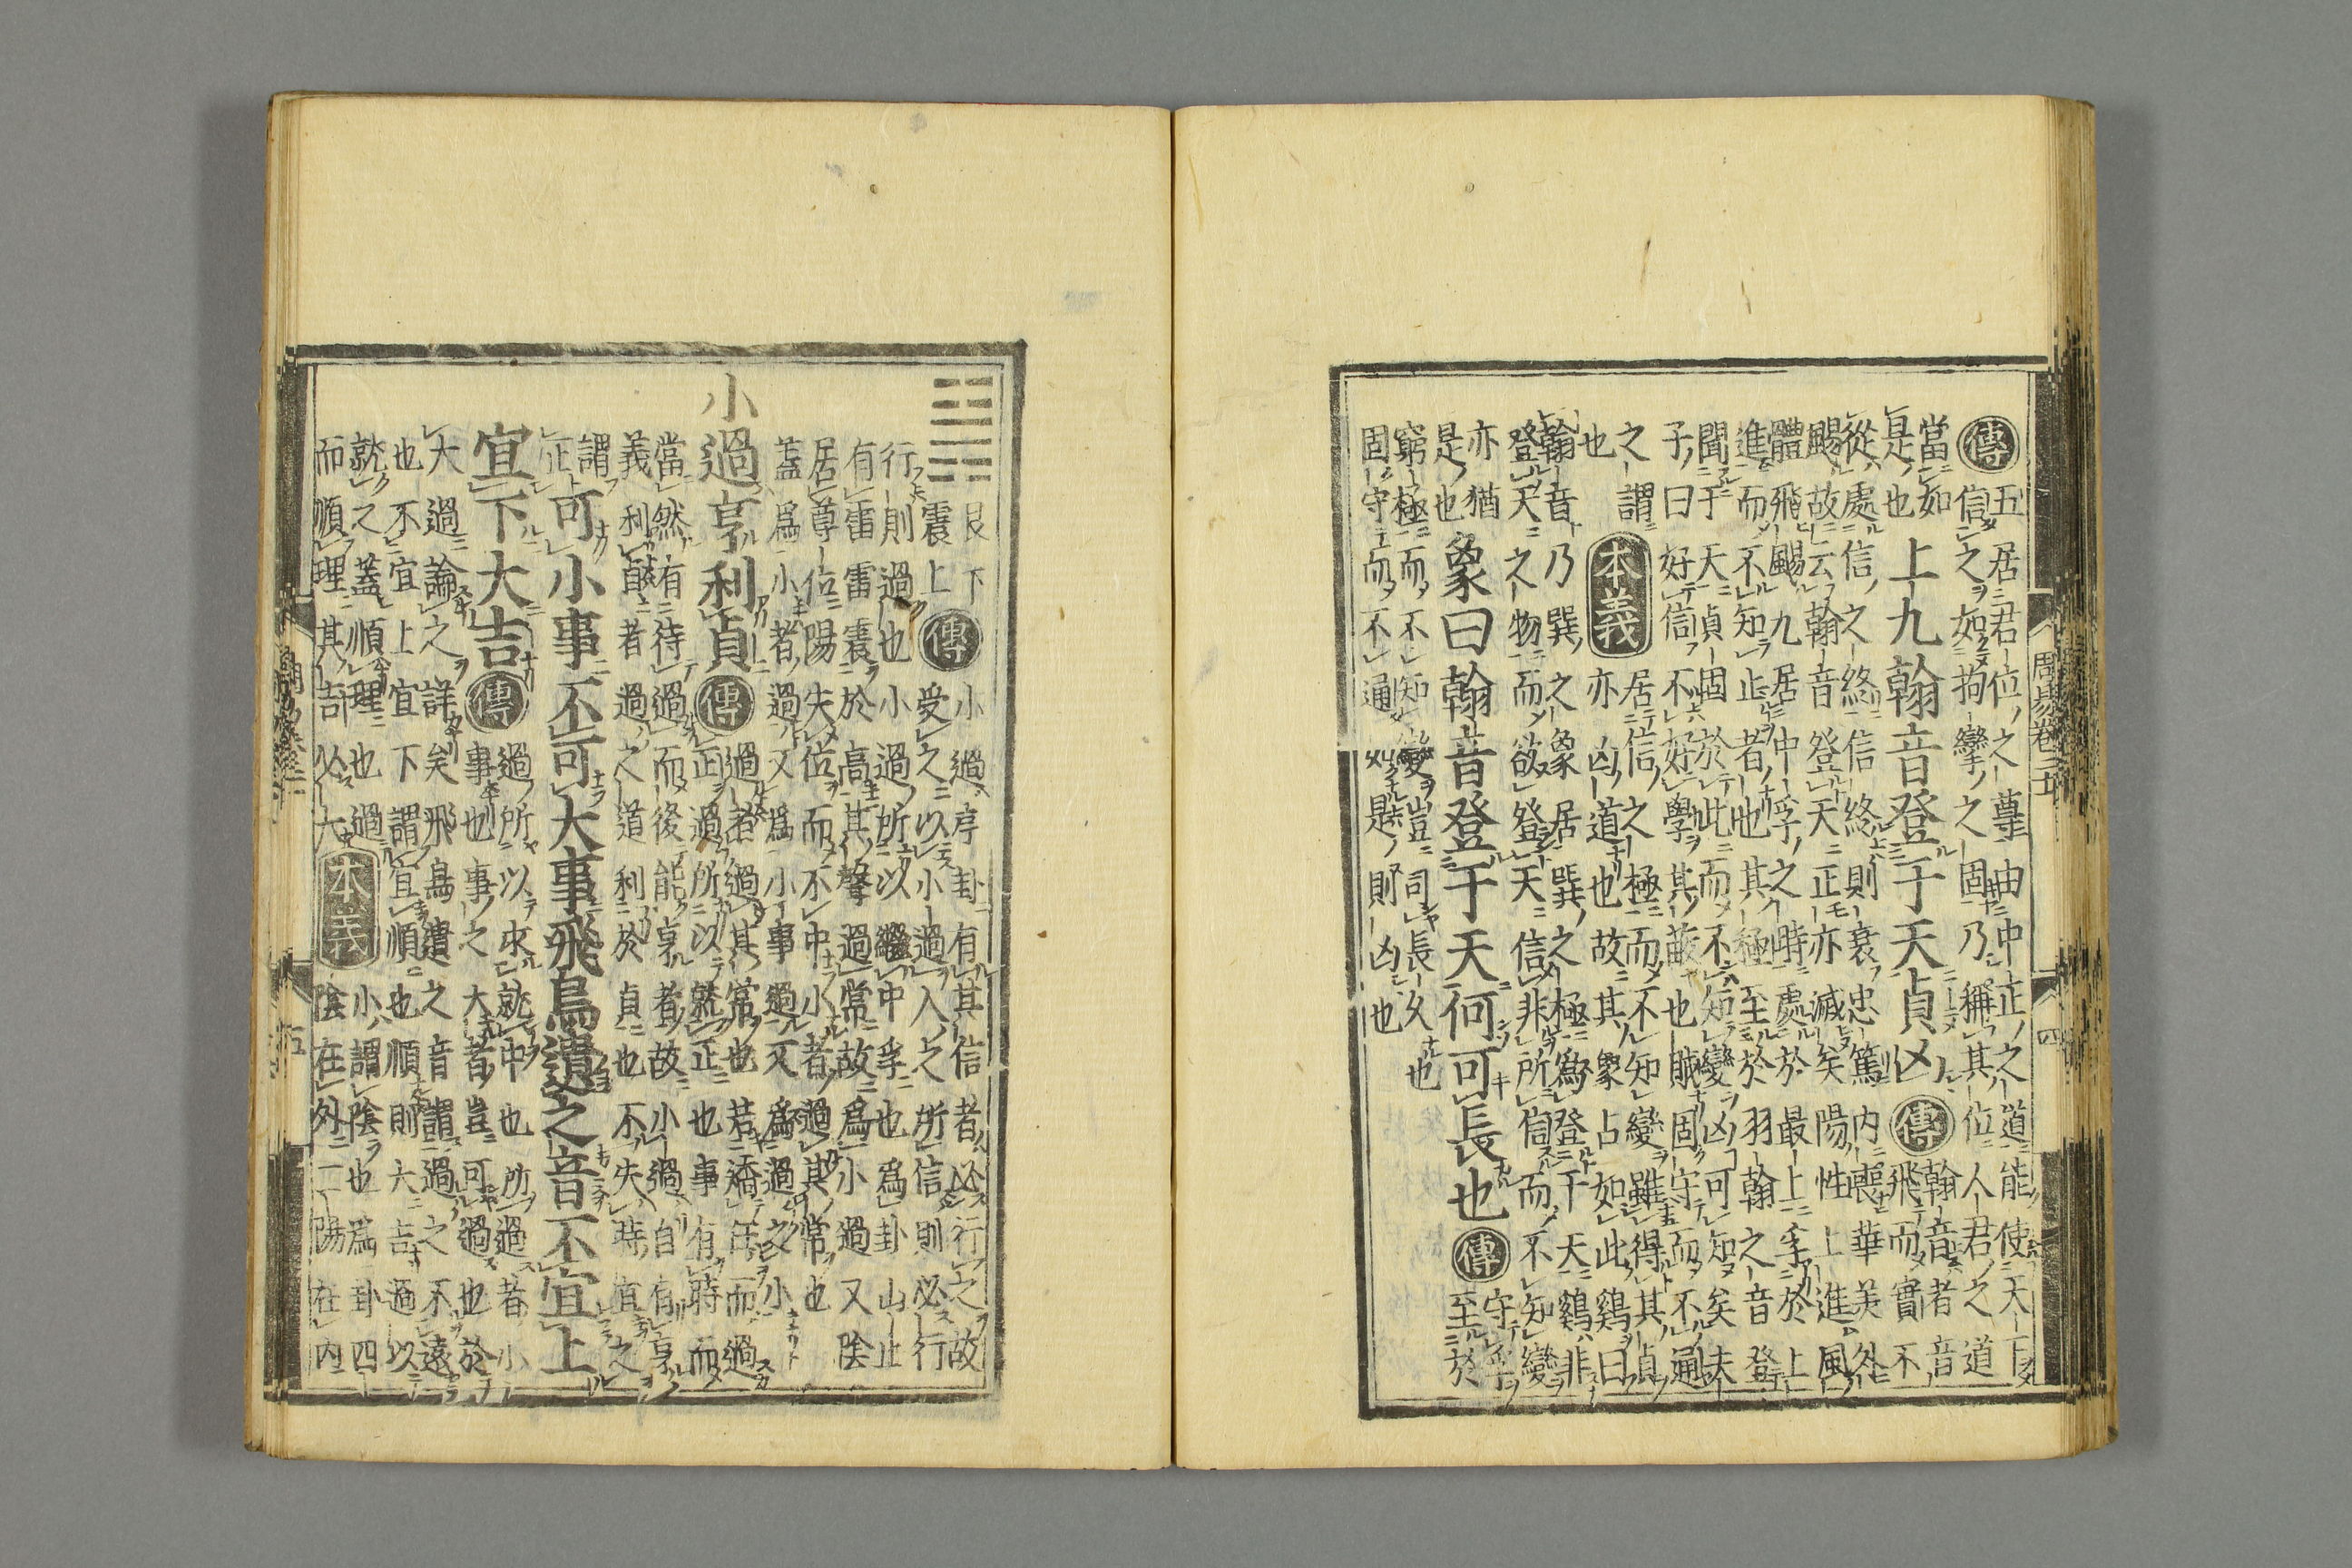 周易卷
四
傳 五居君位之尊由中正之道能使天下
信之如拘攣之固乃稱其位人君之道
當如
是也
上九翰音登于天貞凶
傳 翰音者音
飛而實不
從處信之終信終則衰忠篤內喪華美外
颺故云翰音登天正亦滅矣陽性上進風
體飛颺九居中孚之時處於最上孚於上
進而不知止者也其極至於羽翰之音登
聞于天貞固於此而不知變凶可知矣夫
子曰好信不好學其蔽也賊固守而不通
之謂
也
本義 居信之極而不知變雖得其貞
亦凶道也故其象占如此鷄曰
翰音乃巽之象居巽之極爲登于天鷄非
登天之物而欲登天信非所信而不知變
亦猶
是也
象曰翰音登于天何可長也
傳 守孚
至於
窮極而不知變豈可長久也
固守而不通如是則凶也
艮下
震上
傳 小過序卦有其信者必行之故
受之以小過人之所信則必行
行則過也小過所以繼中孚也爲卦山上
有雷雷震於高其聲過常故爲小過又陰
居尊位陽失位而不中小者過其常也
蓋爲小者過又爲小事過又爲過之小
小過亨利貞
傳 過者過其常也若矯枉而過
正過所以就正也事有時而
當然有待過而後能亨者故小過自有亨
義利貞者過之道利於貞也不失時宜之
謂
正
可小事不可大事飛鳥遺之音不宜上
宜下大吉
傳 過所以求就中也所過者小
事也事之大者豈可過也於
大過論之詳矣飛鳥遺之音謂過之不遠
也不宜上宜下謂宜順也順則大吉過以
就之蓋順理也過
而順理其吉必大
本義 小謂陰也爲卦四
陰在外二陽在內
五